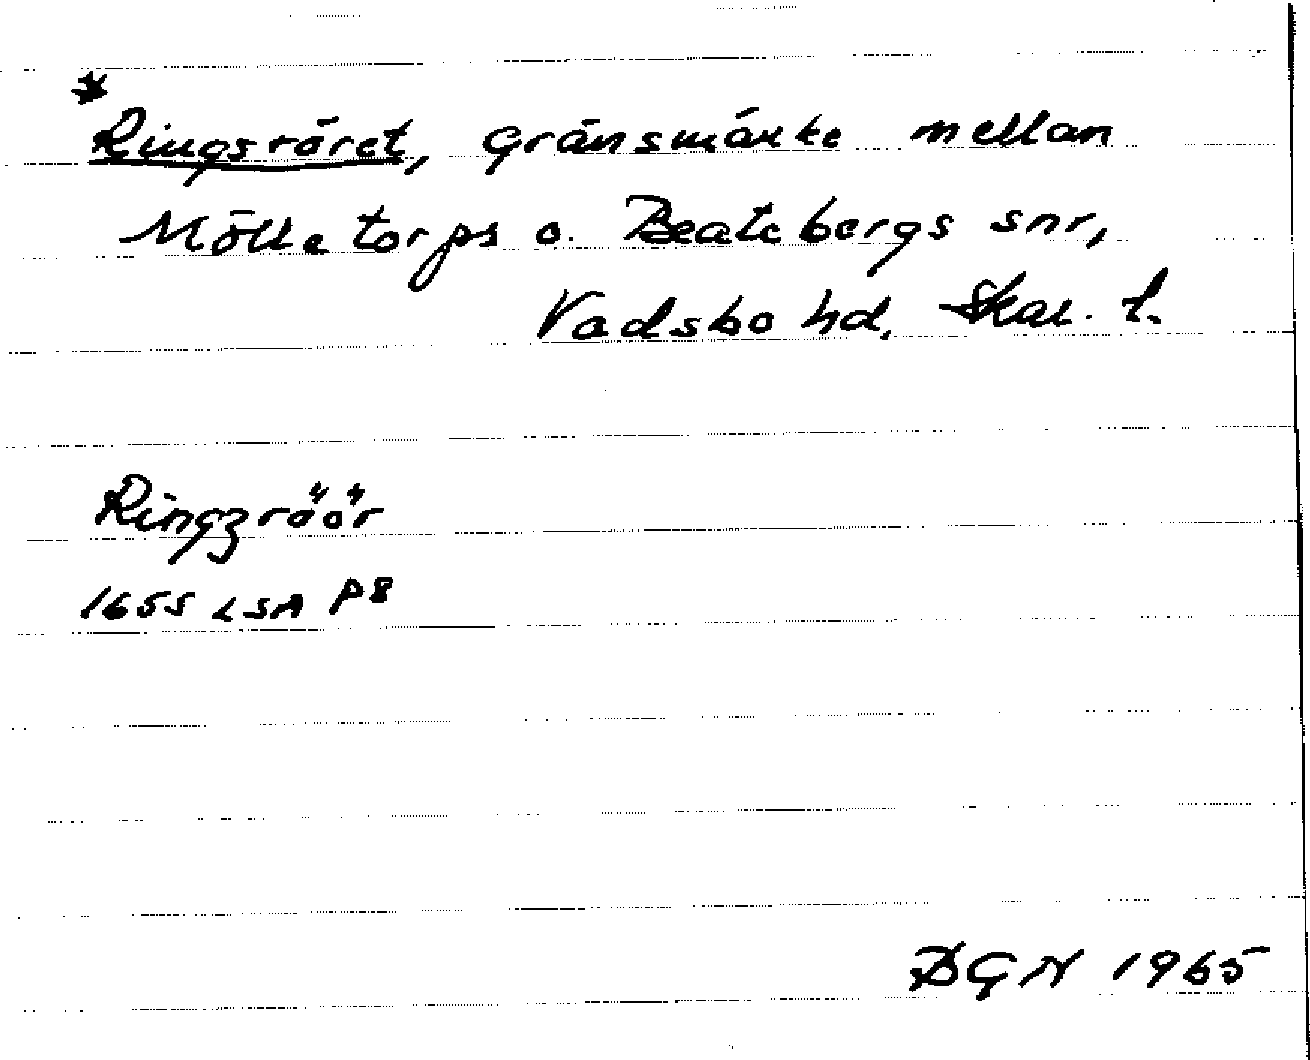 *
Ringsröret, gränsmärke mellan
Mölltorps o. Beatebergs snr,
Vadsbo hd, Skar. l.
Ringzröör
1655 LSA P8
DGN 1965